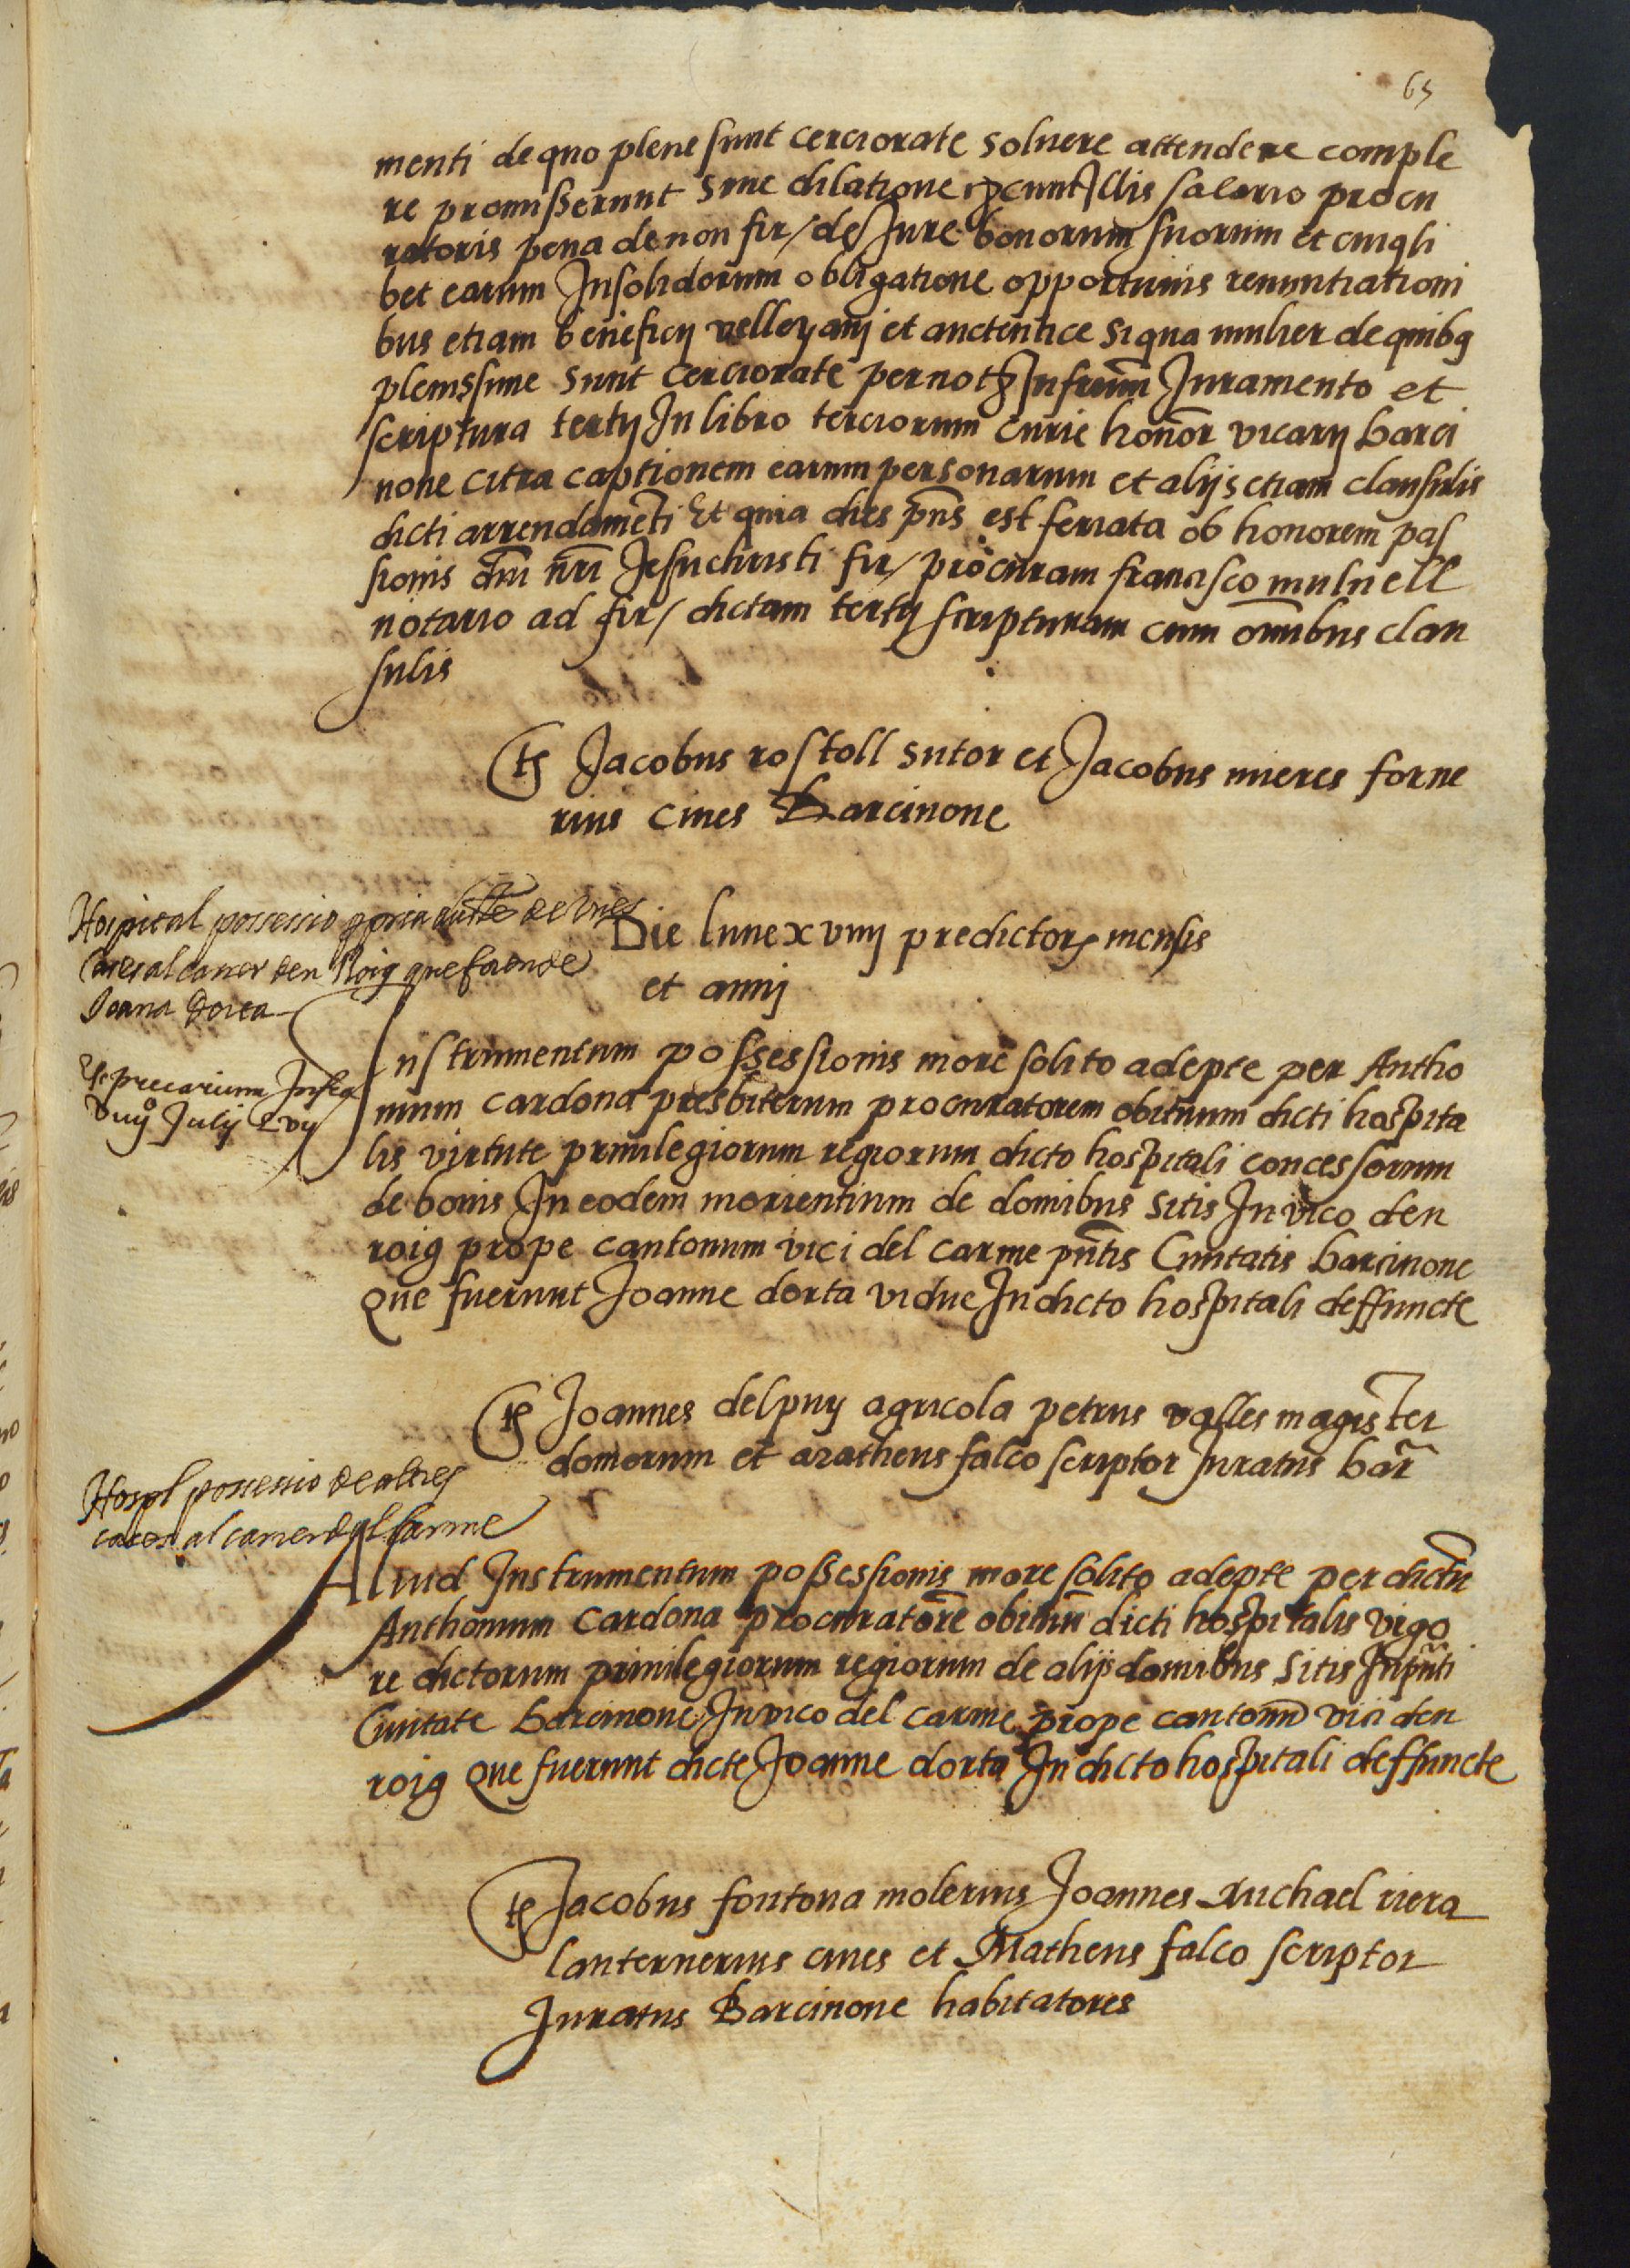 65
menti de quo plene sunt cerciorate solvere attendere comple
re promisserunt sine dilatione salario procu
ratoris pena de non fir/ de Jure bonorum suorum et cuiqli
bet earum Insolidorum obligatione opportunis renuntiationi
bus etiam beneficij velleyanj et auctentice si qua mulier de quibq
plenissime sunt cerciorate per Juramento et
scriptura tertij In libro terciorum curie honor vicarij barci
none citra captionem earum personarum et alijs etiam clausulis
dicti arrendameti Et quia dies pns est feriata ob honorem pas
sionis dni nri Jesuchristi fir/ procuram francisco mulnell
notario ad fir/ dictam tertij scripturam cum omibus clau
sulis
ts Jacobus rostoll sutor et Jacobus mieres forne
rius cives Barcinone
Hospital possessio de unes
Cases al carrer den Roig que foren de
Joana Dorta
Die lune xviiij predictor mensis
et annj
Et precarium Infra
viiijº Julij Lvij
Instrumentum possessionis more solito adepte per Antho
nium cardona presbiterum procuratorem obituum dicti hospita
lis virtute privilegiorum regiorum dicto hospitali concessorum
de bonis In eodem morientium de domibus sitis In vico den
roig prope cantonum vici del carme pntis Civitatis barcinone
que fuerunt Joanne dorta vidue In dicto hospitali deffuncte
ts Joannes delpuy agricola petrus valles magister
domorum et matheus falco scriptor Juratus bar
Hospl possessio de altres
cases al carrer del Carme
Aliud Instrumentum possessionis more solito adepte per dictu
Anthonium cardona procuratore obituu dicti hospitalis vigo
re dictorum privilegiorum regiorum de alijs domibus sitis In pnti
Civitate barcinone In vico del carme prope cantonu vici den
roig que fuerunt dicte Joanne dorta In dicto hospitali deffuncte
ts Jacobus fontona molerius Joannes Michael riera
lanternerius cives et Matheus falco scriptor
Juratus Barcinone habitatores